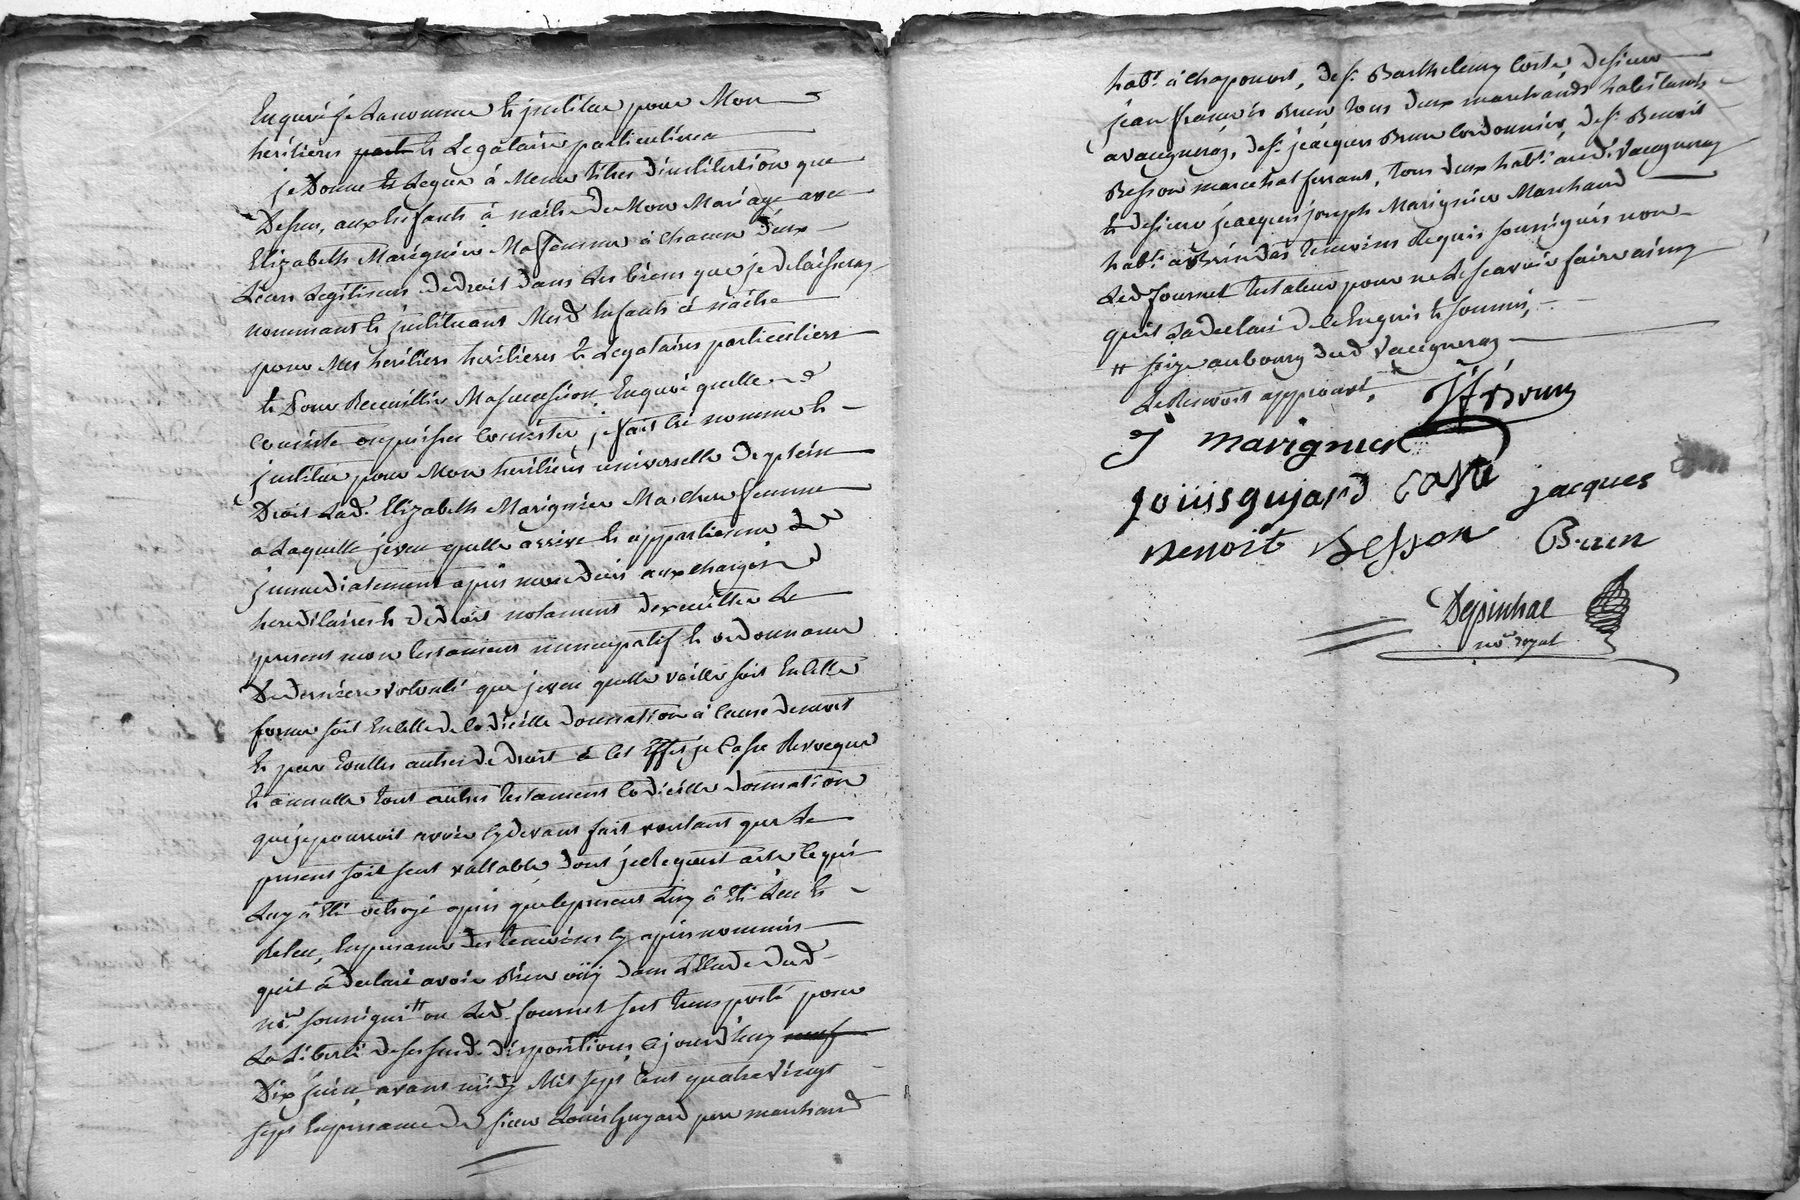 Enquoi je La nomme & institue pour Mon
héritière part & Légataire particulière
je Donne & Legue à Meme titres d'institution que
Dessus, aux Enfants à naitre de Mon Mariage avec
Elizabeth Marignier Ma femme à chacun d'eux
Leurs Legitimes de droit Dans Les biens que je delaisseray
nommant & instituant Mesd Enfants à naitre
pour Mes heritiers heritieres & Legataires particuliers
& Pour Recueillir Ma succession Enquoi quelle
Consiste ou puisse Consister, je fait Cré nomme &
institue pour Mon heritiere universelle de plein
Droit Lad. Elizabeth Marignier Ma chere femme
a Laquelle je veu quelle arrive & appartienne
immediatement après mon deces aux charges
hereditaires & de droit notament d'executter Le
present mon testament nuncupatif & ordonnance
De derniere volonté que je veu quelle vaille soit En cette
forme soit En celle de Codicille donnation à Cause de mort
& par toutes autres de droit à Cet Effet je Casse Revoque
& annulle tout autres testament Codicille donnation
que je pourroit avoir Cy devant fait voulant que Le
present soit seul vallable dont je Requert acte Ce qui
Luy à Eté octroyé après que le present Luy à Eté Leu &
Releu, En presence des temoins Cy après nommés
quil à declaré avoir Bien ouy dans L'Etude dud
nore. soussigné # ou Led. fournet sest transporté pour
La Liberté de ses susd. dispositions Cejourd'huy neuf
Dix juin avant midy Mil sept Cent quatre vingt
sept En presence de sieur Louis Guyard pere marchand
habt. à Chaponost, de sr. Barthelemy Coste de sieur
jean françois Brun tous deux marchands habitants
a vaugneray, de sr. jacques Brun Cordonnier, de sr. Benoit
Besson marechal ferrant, tous deux habts. aud. vaugneray
& de sieur jacques joseph Marignier Marchand
habt. a Brindas temoins Requis soussignés non
Led fournet testateur pour ne Le scavoir faire ainsy
quil La declaré de ce Enquis & sommé,
# size au bourg dud vaugneray
Le Renvoit approuvé, JfsBrun
J marignier
Louis gujard Coste jacques
Benoit Besson Brun
Depinhac
nore. royal